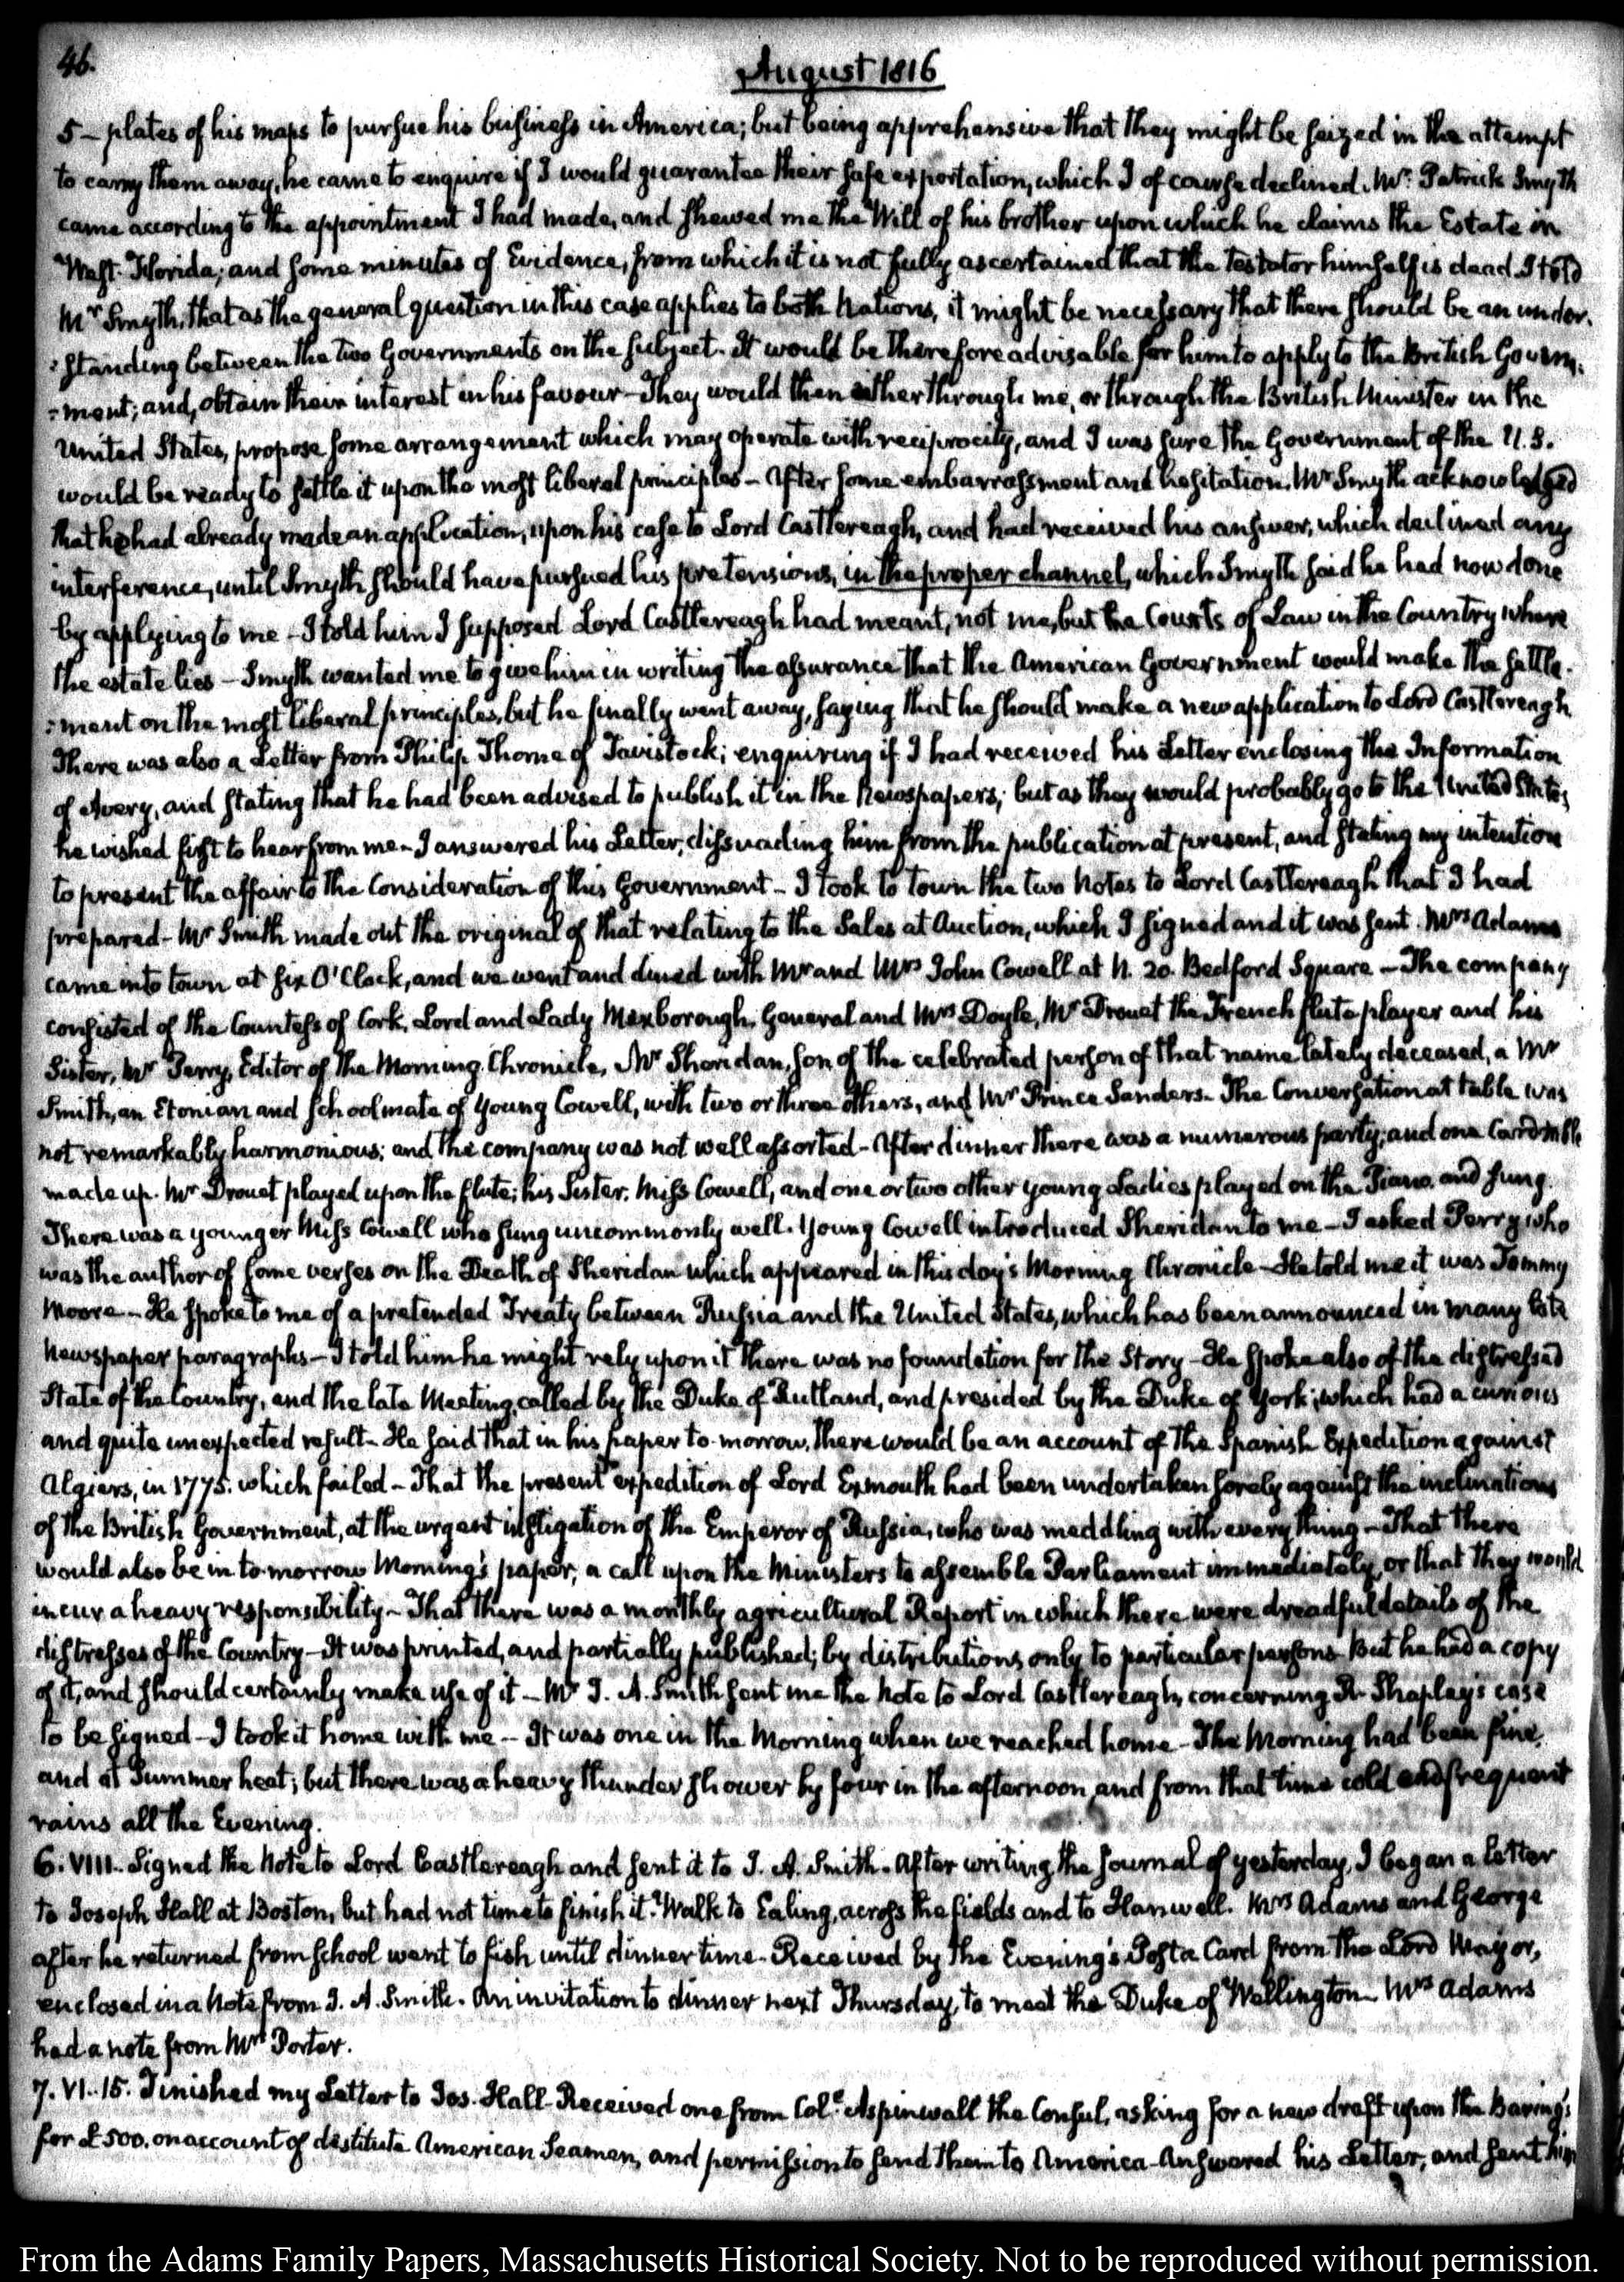 46.
August 1816
5 — plates of his maps to pursue his business in America; but being apprehensive that they might be seized in the attempt
to carry them away, he came to enquire if I would guarantee their safe exportation, which I of course declined. Mr. Patrick Smyth
came according to the appointment I had made, and shewed me the Will of his brother upon which he claims the Estate in
West-Florida; and some minutes of Evidence, from which it is not fully ascertained that the Testator himself is dead. I told
Mr Smyth, that as the general question in this case applies to both Nations, it might be necessary that there should be an under-
:standing between the two Governments on the subject. It would be therefore advisable for him to apply to the British Govern-
:ment; and, obtain their interest in his favour — They would then either through me, or through the British Minister in the
United States, propose some arrangement which may operate with reciprocity, and I was sure the Government of the U.S.
would be ready to settle it upon the most liberal principles — After some embarrassment and hesitation, Mr Smyth acknowledged
that he had already made an application, upon his case to Lord Castlereagh, and had received his answer, which declined any
interference, until Smyth should have pursued his pretensions, in the proper channel, which Smyth said he had now done
by applying to me — I told him I supposed Lord Castlereagh had meant, not me, but the Courts of Law in the Country where
the estate lies — Smyth wanted me to give him in writing the assurance that the American Government would make the settle-
:ment on the most liberal principles, but he finally went away, saying that he should make a new application to Lord Castlereagh.
There was also a Letter from Philip Thorne of Tavistock; enquiring if I had received his Letter enclosing the Information
of Avery, and stating that he had been advised to publish it in the Newspapers; but as they would probably go to the United States,
he wished first to hear from me — I answered his Letter, dissuading him from the publication at present, and stating my intention
to present the affair to the Consideration of this Government — I took to town the two Notes to Lord Castlereagh that I had
prepared — Mr Smith made out the original of that relating to the Sales at Auction, which I signed and it was sent. Mrs Adams
came into town at six O'Clock, and we went and dined with Mr and Mrs John Cowell at N. 20. Bedford Square — The company
consisted of the Countess of Cork, Lord and Lady Mexborough, General and Mrs Doyle, Mr Drouet the French flute player and his
Sister, Mr Perry, Editor of the Morning Chronicle, Mr Sheridan, son of the celebrated person of that name lately deceased, a Mr
Smith, an Etonian and schoolmate of young Cowell, with two or three others, and Mr Prince Sanders. The Conversation at table was
not remarkably harmonious; and the company was not well assorted — After dinner there was a numerous party; and one Card table
made up. Mr Drouet played upon the flute; his Sister, Miss Cowell, and one or two other young Ladies played on the Piano, and sung.
There was a younger Miss Cowell who sung uncommonly well. Young Cowell introduced Sheridan to me — I asked Perry who
was the author of some verses on the Death of Sheridan which appeared in this day's Morning Chronicle — He told me it was Tommy
Moore — He spoke to me of a pretended Treaty between Russia and the United States, which has been announced in many late
Newspaper paragraphs — I told him he might rely upon it there was no foundation for the Story — He spoke also of the distressed
State of the Country, and the late Meeting called by the Duke of Rutland, and presided by the Duke of York; which had a curious
and quite unexpected result — He said that in his paper to-morrow, there would be an account of the Spanish Expedition against
Algiers, in 1775. which failed — That the present expedition of Lord Exmouth had been undertaken sorely against the inclinations
of the British Government, at the urgent instigation of the Emperor of Russia, who was meddling with every thing — That there
would also be in to-morrow Morning's paper, a call upon the Ministers to assemble Parliament immediately, or that they would
incur a heavy responsibility — That there was a monthly agricultural Report in which there were dreadful details of the
distresses of the Country — It was printed, and partially published; by distributions only to particular persons — But he had a copy
of it, and should certainly make use of it — Mr J. A. Smith sent me the Note to Lord Castlereagh, concerning R. Shapley's case
to be signed — I took it home with me — It was one in the Morning when we reached home — The Morning had been fine,
and at Summer heat; but there was a heavy thunder shower by four in the afternoon and from that time cold and frequent
rains all the Evening.
6. VIII. Signed the Note to Lord Castlereagh and sent it to J. A. Smith. After writing the Journal of yesterday, I began a Letter
to Joseph Hall at Boston, but had not time to finish it. Walk to Ealing, across the fields and to Hanwell. Mrs Adams and George
after he returned from school went to fish until dinner time. Received by the Evening's Post a Card from the Lord Mayor,
enclosed in a Note from J. A. Smith. An invitation to dinner next Thursday, to meet the Duke of Wellington — Mrs Adams
had a note from Mrs Porter.
7. VI. 15. Finished my Letter to Jos. Hall. Received one from Coll. Aspinwall the Consul, asking for a new draft upon the Barings
for £500. on account of destitute American Seamen, and permission to send them to America. Answered his Letter, and sent him
From the Adams Family Papers, Massachusetts Historical Society. Not to be reproduced without permission.